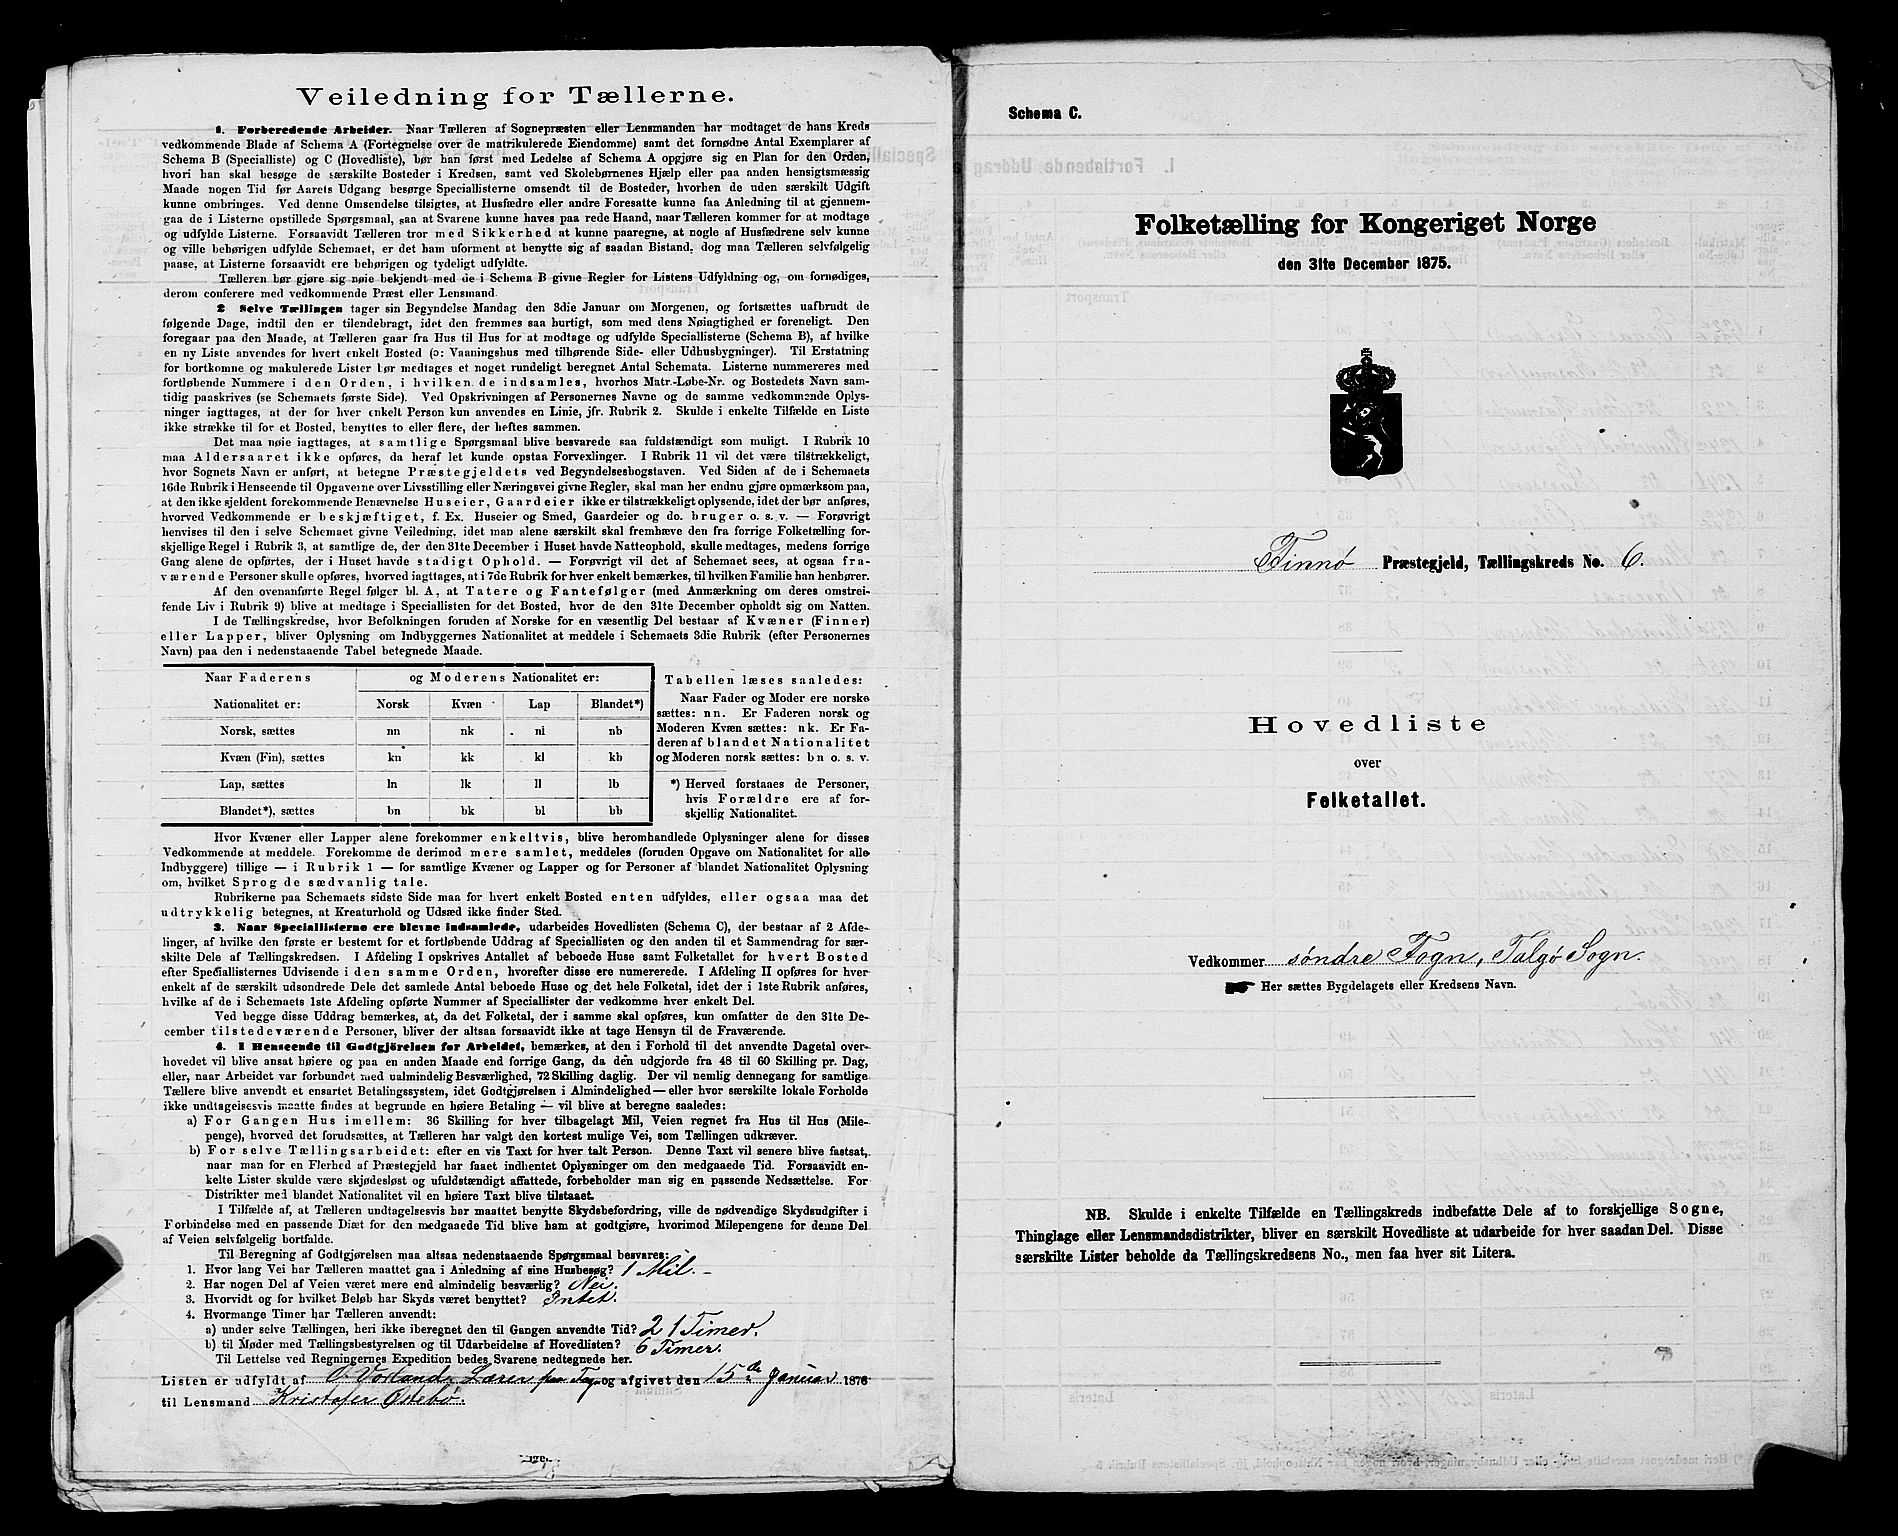 Veiledning for Tællerne.
1. Forberedende Arbeider. Naar Tælleren af Sognepræsten eller Lensmanden har modtaget de hans Kreds
vedkommende Blade af Schema A (Fortegnelse over de matrikulerede Eiendomme) samt det fornødne Antal Exemplarer af
Schema B (Specialliste) og C (Hovedliste), bør han først med Ledelse af Schema A opgjøre sig en Plan for den Orden,
hvori han skal besøge de særskilte Bosteder i Kredsen, samt ved Skolebørnenes Hjælp eller paa anden hensigtsmæssig
Maade nogen Tid før Aarets Udgang besørge Speciallisterne omsendt til de Bosteder, hvorhen de uden særskilt Udgift
kunne ombringes. Ved denne Omsendelse tilsigtes, at Husfædre eller andre Foresatte kunne faa Anledning til at gjennem-
gaa de i Listerne opstillede Spørgsmaal, saa at Svarene kunne haves paa rede Haand, naar Tælleren kommer for at modtage
og udfylde Listerne. Forsaavidt Tælleren tror med Sikkerhed at kunne paaregne, at nogle af Husfædrene selv kunne
og ville behørigen udfylde Schemaet, er det ham uforment at benytte sig af saadan Bistand, dog maa Tælleren selvfølgelig
paase, at Listerne forsaavidt ere behørigen og tydeligt udfyldte.
Tælleren bør gjøre sig nøie bekjendt med de i Schema B givne Regler for Listens Udfyldning og, om fornødiges,
derom conferere med vedkommende Præst eller Lensmand.
2 Selve Tællingen tager sin Begyndelse Mandag den 3die Januar om Morgenen, og fortsættes uafbrudt de
følgende Dage, indtil den er tilendebragt, idet den fremmes saa hurtigt, som med dens Nøiagtighed er foreneligt. Den
foregaar paa den Maade, at Tælleren gaar fra Hus til Hus for at modtage og udfylde Speciallisterne (Schema B), af hvilke
en ny Liste anvendes for hvert enkelt Bosted (ɔ: Vaaningshus med tilhørende Side- eller Udhusbygninger). Til Erstatning
for bortkomne og makulerede Lister bør medtages et noget rundeligt beregnet Antal Schemata. Listerne nummereres med
fortløbende Nummere i den Orden, i hvilken de indsamles, hvorhos Matr.-Løbe-Nr. og Bostedets Navn sam-
tidig paaskrives (se Schemaets første Side). Ved Opskrivningen af Personernes Navne og de samme vedkommende Oplys-
ninger iagttages, at der for hver enkelt Person kun anvendes en Linie, jfr. Rubrik 2. Skulde i enkelte Tilfælde en Liste
ikke strække til for et Bosted, benyttes to eller flere, der heftes sammen.
Det maa nøie iagttages, at samtlige Spørgsmaal blive besvarede saa fuldstændigt som muligt. I Rubrik 10
maa Aldersaaret ikke opføres, da heraf let kunde opstaa Forvexlinger. I Rubrik 11 vil det være tilstrækkeligt,
hvor Sognets Navn er anført, at betegne Præstegjeldets ved Begyndelsesbogstaven. Ved Siden af de i Schemaets
16de Rubrik i Henseende til Opgaverne over Livsstilling eller Næringsvei givne Regler, skal man her endnu gjøre opmærksom paa,
at den ikke sjeldent forekommende Benævnelse Huseier, Gaardeier ikke er tilstrækkeligt oplysende, idet der bør anføres,
hvorved Vedkommende er beskjæftiget, f. Ex. Huseier og Smed, Gaardeier og do. bruger o. s. v. — Forøvrigt
henvises til den i selve Schemaet givne Veiledning, idet man alene særskilt skal fremhæve den fra forrige Folketælling for-
skjellige Regel i Rubrik 3, at samtlige de, der den 31te December i Huset havde Natteophold, skulle medtages, medens forrige
Gang alene de opførtes, der i Huset havde stadigt Ophold. — Forøvrigt vil det af Schemaet sees, at ogsaa fra-
værende Personer skulle opføres, hvorved iagttages, at i 7de Rubrik for hver enkelt bemærkes, til hvilken Familie han henhører.
Af den ovenanførte Regel følger bl. A, at Tatere og Fantefølger (med Anmærkning om deres omstrei-
fende Liv i Rubrik 9) blive at medtage i Speciallisten for det Bosted, hvor de den 31te December opholdt sig om Natten.
I de Tællingskredse, hvor Befolkningen foruden af Norske for en væsentlig Del bestaar af Kvæner (Finner)
eller Lapper, bliver Oplysning om Indbyggernes Nationalitet at meddele i Schemaets 3die Rubrik (efter Personernes
Navn) paa den i nedenstaaende Tabel betegnede Maade.
Naar Faderens og Moderens Nationalitet er:
Nationalitet er: Norsk Kvæn Lap Blandet*)
Norsk, sættes nn nk nl nb
Kvæn (Fin), sættes kn kk kl kb
Lap, sættes ln lk ll lb
Blandet*), sættes bn bk bl bb
Tabellen læses saaledes:
Naar Fader og Moder ere norske
sættes: nn. Er Faderen norsk og
Moderen Kvæn sættes: nk. Er Fa-
deren af blandet Nationalitet
og Moderen norsk sættes: bn o. s. v.
*) Herved forstaaes de Personer,
hvis Forældre ere af for-
skjellig Nationalitet.
Hvor Kvæner eller Lapper alene forekommer enkeltvis, blive heromhandlede Oplysninger alene for disses
Vedkommende at meddele. Forekomme de derimod mere samlet, meddeles (foruden Opgave om Nationalitet for alle
Indbyggere) tillige — i Rubrik 1 — for samtlige Kvæner og Lapper og for Personer af blandet Nationalitet Oplysning
om, hvilket Sprog de sædvanlig tale.
Rubrikerne paa Schemaets sidste Side maa for hvert enkelt Bosted enten udfyldes, eller ogsaa maa det
udtrykkelig betegnes, at Kreaturhold og Udsæd ikke finder Sted.
3. Naar Speciallisterne ere blevne indsamlede, udarbeides Hovedlisten (Schema C), der bestaar af 2 Afde-
linger, af hvilke den første er bestemt for et fortløbende Uddrag af Speciallisten og den anden til et Sammendrag for sær-
skilte Dele af Tællingskredsen. I Afdeling I opskrives Antallet af beboede Huse samt Folketallet for hvert Bosted
efter Speciallisternes Udvisende i den samme Orden, hvorefter disse ere numererede. I Afdeling II opføres for hver
enkelt af de særskilt udsondrede Dele det samlede Antal beboede Huse og det hele Folketal, idet der i 1ste Rubrik anføres,
hvilke af de i Schemaets 1ste Afdeling opførte Nummer af Speciallister der vedkomme hver enkelt Del.
Ved begge disse Uddrag bemærkes, at, da det Folketal, der i samme skal opføres, kun omfatter de den 31te De-
cember tilstedeværende Personer, bliver der altsaa forsaavidt ikke at tage Hensyn til de Fraværende.
4. I Henseende til Godtgjörelsen for Arbeidet, bemærkes, at den i Forhold til det anvendte Dagetal over-
hovedet vil blive ansat høiere og paa en anden Maade end forrige Gang, da den udgjorde fra 48 til 60 Skilling pr. Dag,
eller, naar Arbeidet var forbundet med ualmindelig Besværlighed, 72 Skilling daglig. Der vil nemlig dennegang for samtlige
Tællere blive anvendt et ensartet Betalingssystem, idet Godtgjørelsen i Almindelighed — eller hvor særskilte lokale Forholde
ikke undtagelsesvis maatte findes at begrunde en høiere Betaling — vil blive at beregne saaledes:
a) For Gangen Hus imellem: 36 Skilling for hver tilbagelagt Mil, Veien regnet fra Hus til Hus (Mile-
penge), hvorved det forudsættes, at Tælleren har valgt den kortest mulige Vei, som Tællingen udkræver.
b) For selve Tællingsarbeidet: efter en vis Taxt for hver talt Person. Denne Taxt vil senere blive fastsat,
naar man for en Flerhed af Præstegjeld har faaet indhentet Oplysninger om den medgaaede Tid. Forsaavidt en-
kelte Lister skulde være skjødesløst og ufuldstændigt affattede, forbeholder man sig en passende Nedsættelse. For
Distrikter med blandet Nationalitet vil en høiere Taxt blive tilstaaet.
I Tilfælde af, at Tælleren undtagelsesvis har maattet benytte Skydsbefordring, ville de nødvendige Skydsudgifter i
Forbindelse med en passende Diæt for den medgaaede Tid blive ham at godtgjøre, hvorimod Milepengene for denne Del
af Veien selvfølgelig bortfalde.
Til Beregning af Godtgjørelsen maa altsaa nedenstaaende Spørgsmaal besvares:
1. Hvor lang Vei har Tælleren maattet gaa i Anledning af sine Husbesøg? 1 Mil.
2. Har nogen Del af Veien været mere end almindelig besværlig? Nei.
3. Hvorvidt og for hvilket Beløb har Skyds været benyttet? Intet.
4. Hvormange Timer har Tælleren anvendt:
a) under selve Tællingen, heri ikke iberegnet den til Gangen anvendte Tid? 21 Timer.
b) til Møder med Tællingsbestyrelsen og til Udarbeidelse af Hovedlisten? 6 Timer.
Til Lettelse ved Regningernes Expedition bedes Svarene nedtegnede her.
Listen er udfyldt af Lærer og afgivet den 15de Januar 1876
til Lensmand Kristofer Østebø.
Schema C.
Folketælling for Kongeriget Norge
den 31te December 1875.
Finnø Præstegjeld, Tællingskreds No. 6.
Hovedliste
over
Folketallet.
Vedkommer søndre Fogn, Talgø Sogn.
Her sættes Bygdelagets eller Kredsens Navn.
NB. Skulde i enkelte Tilfælde en Tællingskreds indbefatte Dele af to forskjellige Sogne,
Thinglage eller Lensmandsdistrikter, bliver en særskilt Hovedliste at udarbeide for hver saadan Del. Disse
særskilte Lister beholde da Tællingskredsens No., men faa hver sit Litera.